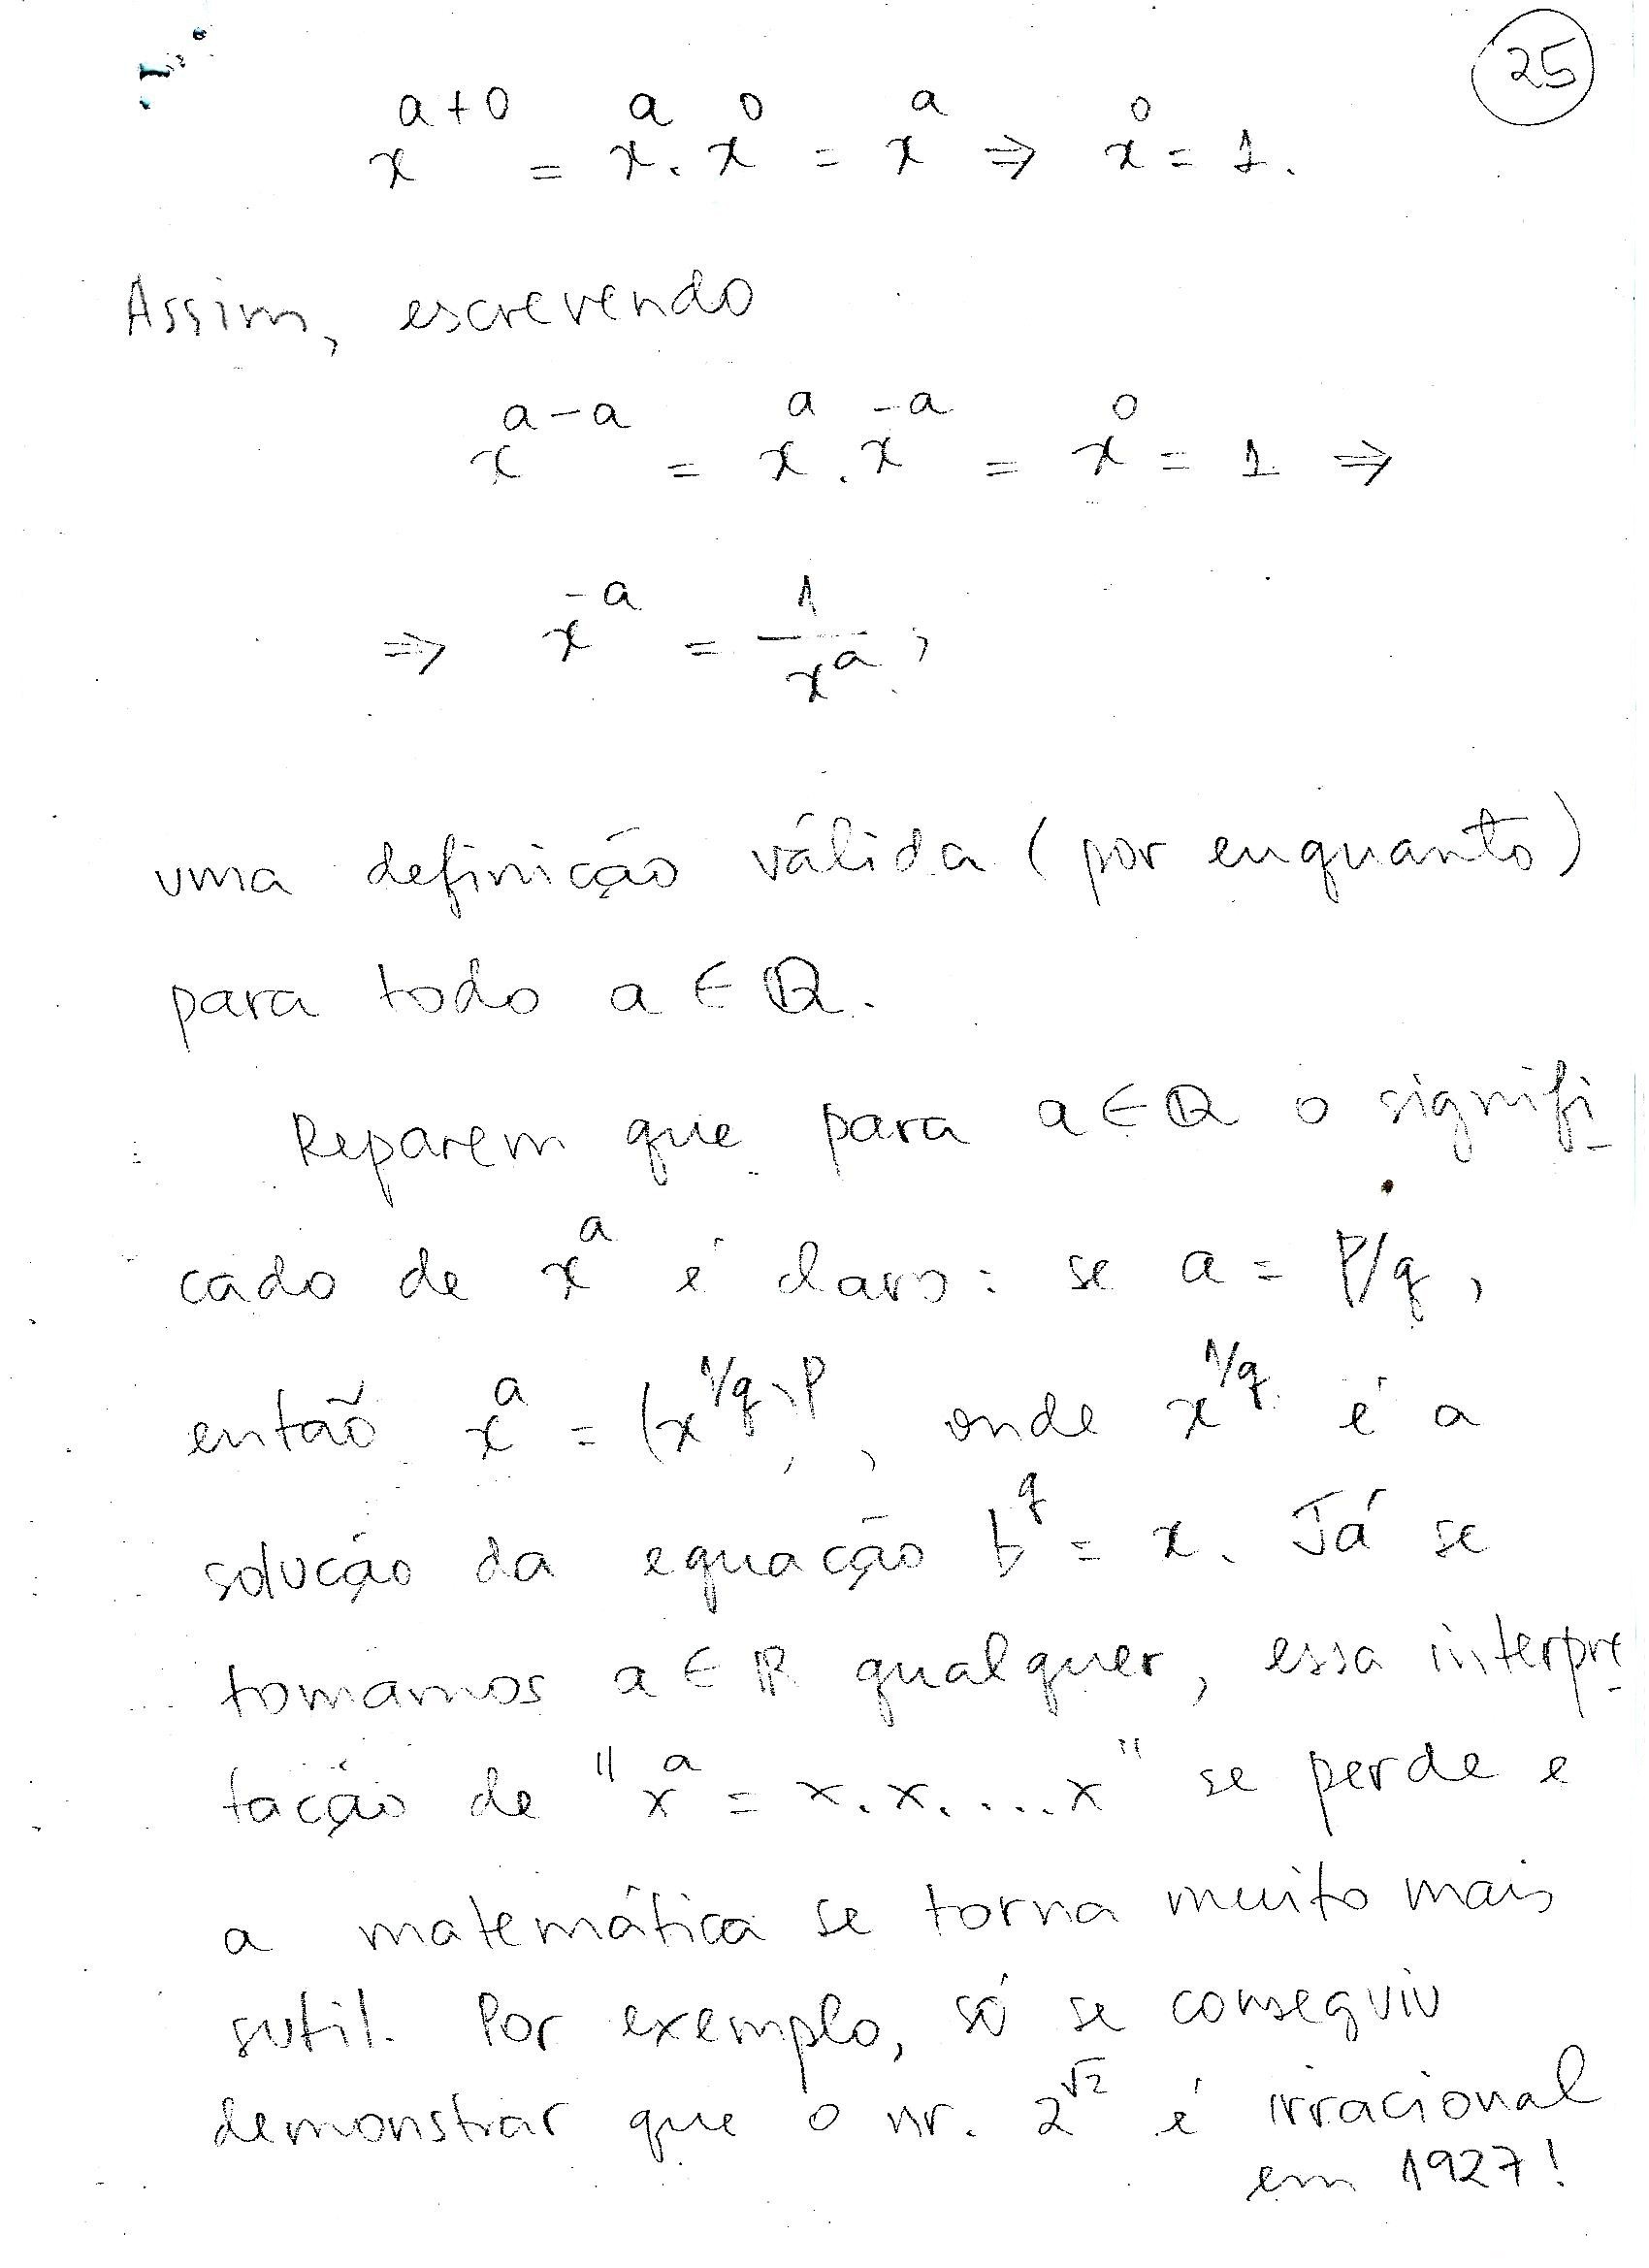 25
x^{a+0} = x^a . x^0 = x^a ⇒ x^0 = 1.
Assim, escrevendo
x^{a-a} = x^a . x^{-a} = x^0 = 1 ⇒
⇒ x^{-a} = 1/x^a ,
uma definição válida (por enquanto)
para todo a ∈ ℚ.
Reparem que para a ∈ ℚ o signifi-
cado de x^a é claro: se a = p/q,
então x^a = (x^{1/q})^p, onde x^{1/q} é a
solução da equação b^q = x. Já se
tomamos a ∈ ℝ qualquer, essa interpre-
tação de "x^a = x.x. ... .x" se perde e
a matemática se torna muito mais
sutil. Por exemplo, só se conseguiu
demonstrar que o nr. 2^{√2} é irracional
em 1927!